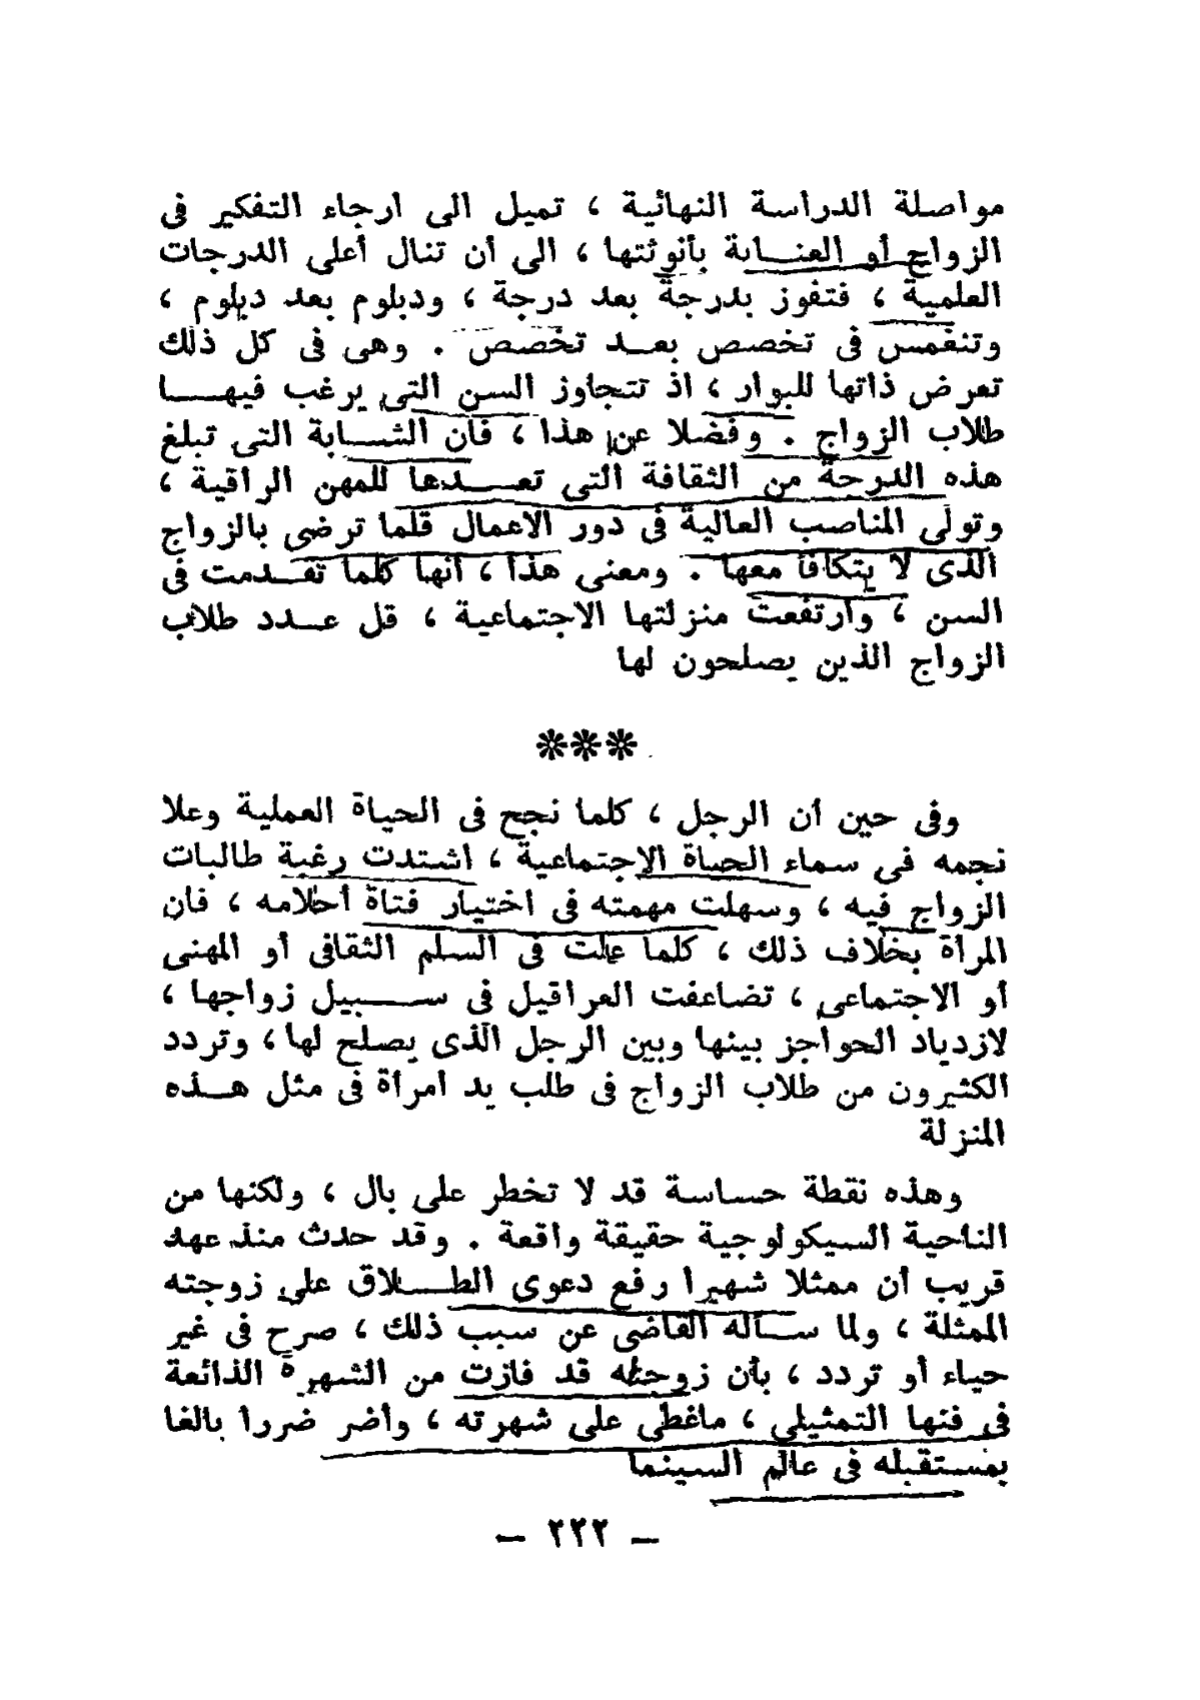 مواصلة الدراسة النهائية ، تميل الى ارجاء التفكير فى
الزواج أو العنـــاية بأنوثتها ، الى أن تنال أعلى الدرجات
العلمية ، فتفوز بدرجة بعد درجة ، ودبلوم بعد دبلوم ،
وتنغمس فى تخصص بعـــد تخصص . وهى فى كل ذلك
تعرض ذاتها للبوار ، اذ تتجاوز السن التى يرغب فيهـــا
طلاب الزواج . وفضلا عن هذا ، فان الشـــابة التى تبلغ
هذه الدرجة من الثقافة التى تعـــدها للمهن الراقية ،
وتولى المناصب العالية فى دور الاعمال قلما ترضى بالزواج
الذى لا يتكافأ معها . ومعنى هذا ، أنها كلما تقـــدمت فى
السن ، وارتفعت منزلتها الاجتماعية ، قل عـــدد طلاب
الزواج الذين يصلحون لها
***
وفى حين أن الرجل ، كلما نجح فى الحياة العملية وعلا
نجمه فى سماء الحياة الاجتماعية ، اشتدت رغبة طالبات
الزواج فيه ، وسهلت مهمته فى اختيار فتاة أحلامه ، فان
المرأة بخلاف ذلك ، كلما علت فى السلم الثقافى أو المهنى
أو الاجتماعى ، تضاعفت العراقيل فى ســـبيل زواجها ،
لازدياد الحواجز بينها وبين الرجل الذى يصلح لها ، وتردد
الكثيرون من طلاب الزواج فى طلب يد امرأة فى مثل هـــذه
المنزلة
وهذه نقطة حساسة قد لا تخطر على بال ، ولكنها من
الناحية السيكولوجية حقيقة واقعة . وقد حدث منذ عهد
قريب أن ممثلا شهيرا رفع دعوى الطـــلاق على زوجته
الممثلة ، ولما ســـأله القاضى عن سبب ذلك ، صرح فى غير
حياء أو تردد ، بأن زوجته قد فازت من الشهرة الذائعة
فى فنها التمثيلى ، ماغطى على شهرته ، وأضر ضررا بالغا
بمستقبله فى عالم السينما
– ٢٢٢ –